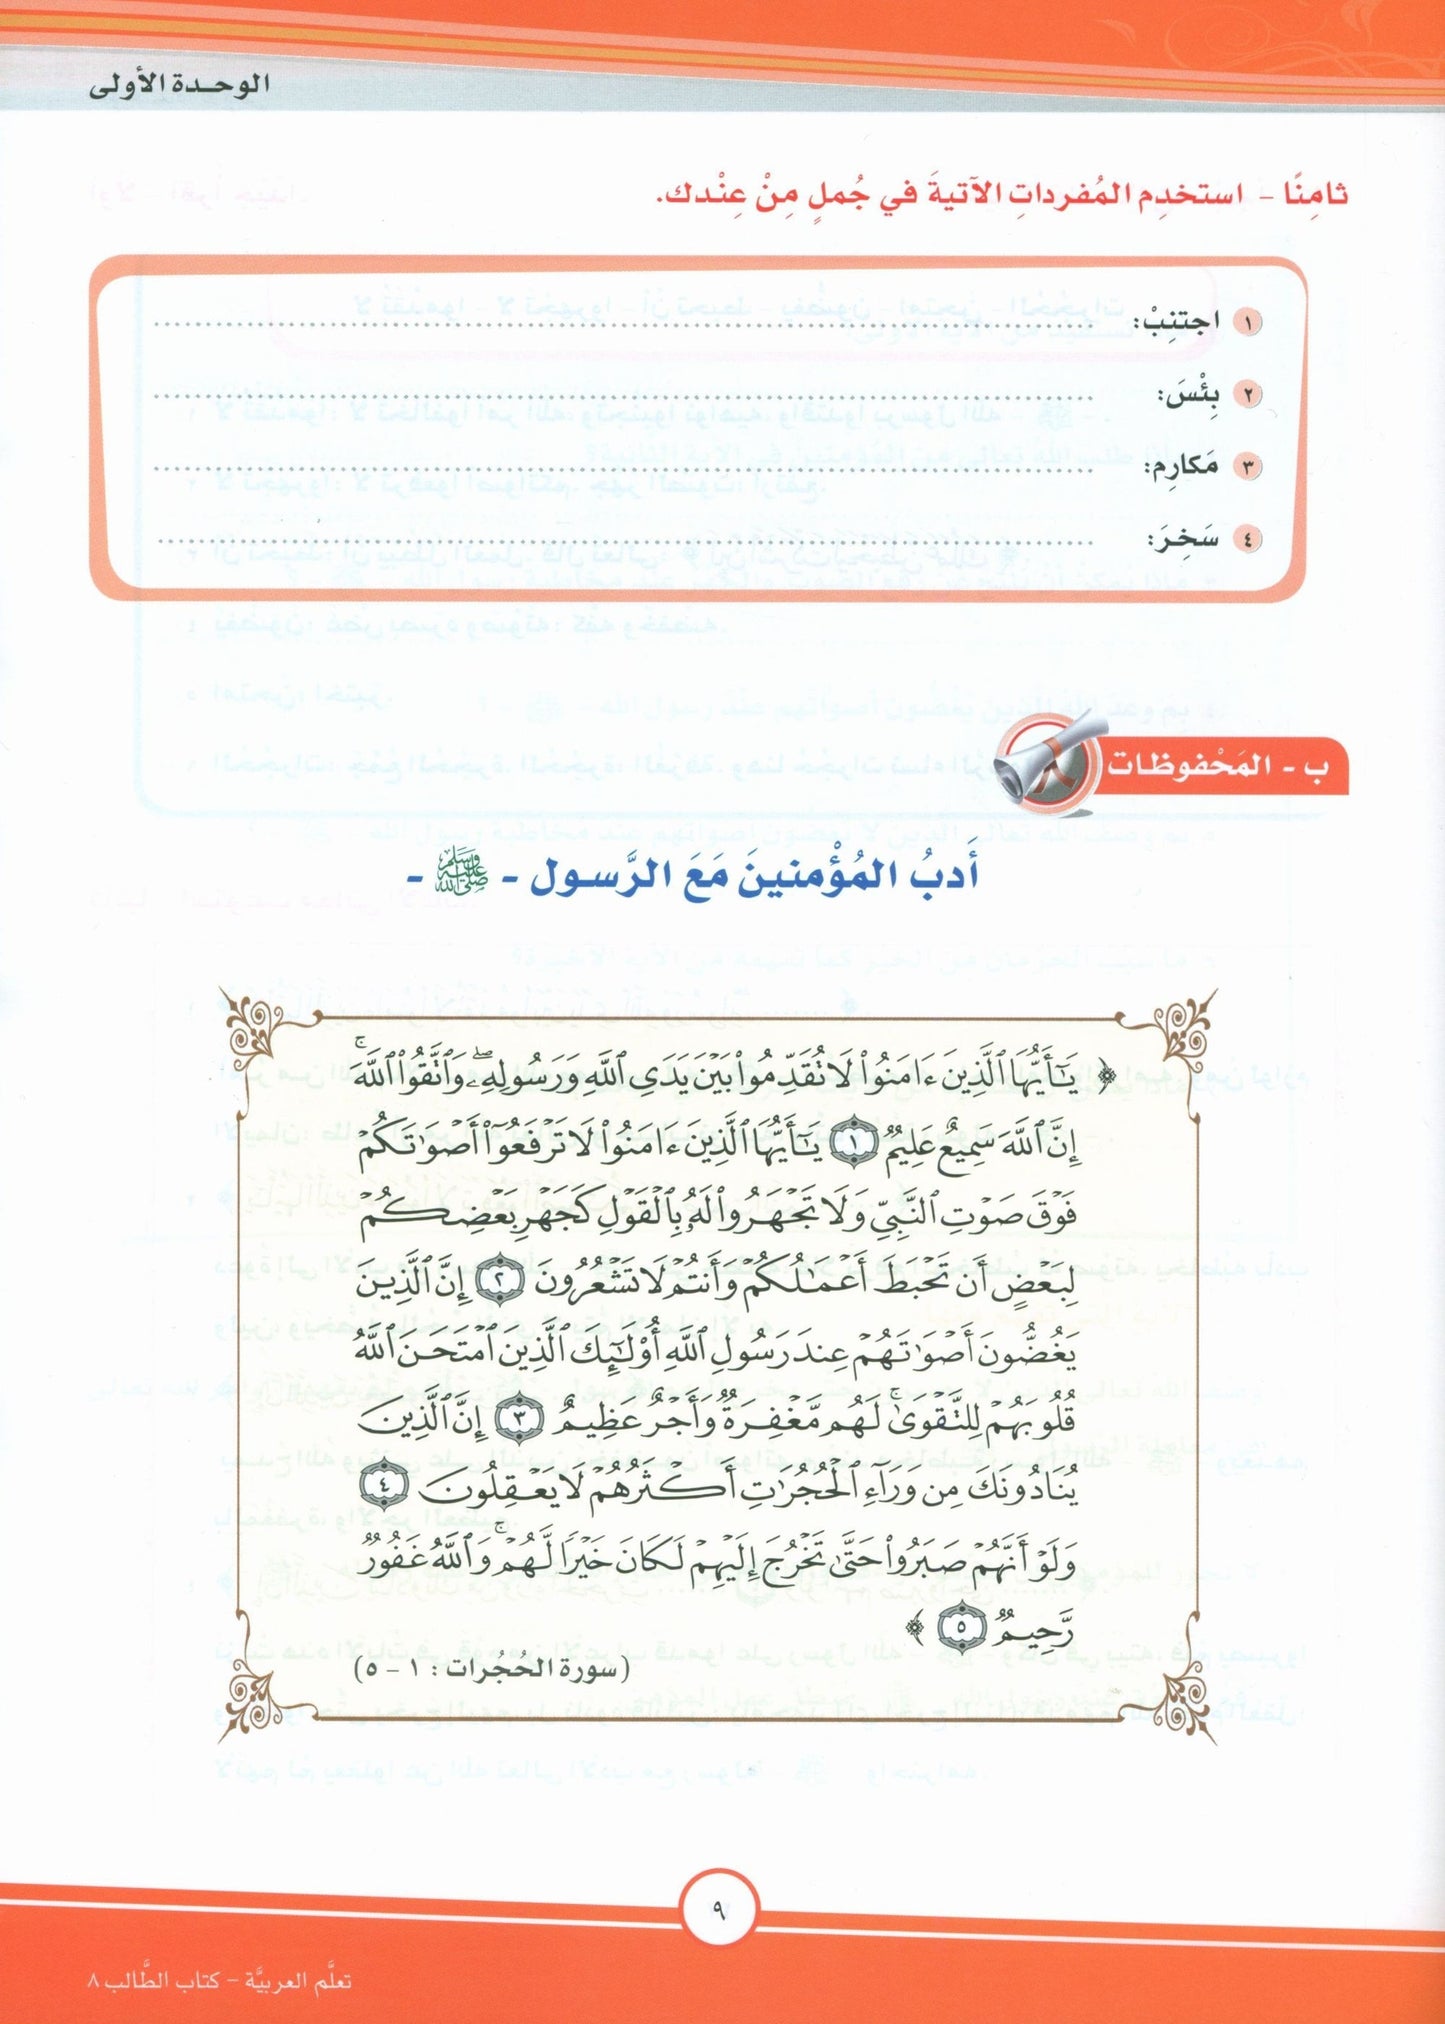 الوحدة الأولى
ثامِنًا - استخدِم المُفرداتِ الآتيةَ في جُملٍ مِنْ عِنْدك.
١ اجتنِبْ:
٢ بِئْسَ:
٣ مَكارِم:
٤ سَخِرَ:
ب - المَحْفوظات
أَدبُ المُؤْمنينَ مَعَ الرَّسول - ﷺ -
﴿ يَـٰٓأَيُّهَا ٱلَّذِينَ ءَامَنُوا۟ لَا تُقَدِّمُوا۟ بَيْنَ يَدَىِ ٱللَّهِ وَرَسُولِهِۦ ۖ وَٱتَّقُوا۟ ٱللَّهَ ۚ
إِنَّ ٱللَّهَ سَمِيعٌ عَلِيمٌ ١ يَـٰٓأَيُّهَا ٱلَّذِينَ ءَامَنُوا۟ لَا تَرْفَعُوٓا۟ أَصْوَٰتَكُمْ
فَوْقَ صَوْتِ ٱلنَّبِىِّ وَلَا تَجْهَرُوا۟ لَهُۥ بِٱلْقَوْلِ كَجَهْرِ بَعْضِكُمْ
لِبَعْضٍ أَن تَحْبَطَ أَعْمَـٰلُكُمْ وَأَنتُمْ لَا تَشْعُرُونَ ٢ إِنَّ ٱلَّذِينَ
يَغُضُّونَ أَصْوَٰتَهُمْ عِندَ رَسُولِ ٱللَّهِ أُو۟لَـٰٓئِكَ ٱلَّذِينَ ٱمْتَحَنَ ٱللَّهُ
قُلُوبَهُمْ لِلتَّقْوَىٰ ۚ لَهُم مَّغْفِرَةٌ وَأَجْرٌ عَظِيمٌ ٣ إِنَّ ٱلَّذِينَ
يُنَادُونَكَ مِن وَرَآءِ ٱلْحُجُرَٰتِ أَكْثَرُهُمْ لَا يَعْقِلُونَ ٤
وَلَوْ أَنَّهُمْ صَبَرُوا۟ حَتَّىٰ تَخْرُجَ إِلَيْهِمْ لَكَانَ خَيْرًا لَّهُمْ ۚ وَٱللَّهُ غَفُورٌ
رَّحِيمٌ ٥ ﴾
(سورة الحُجُرات: ١ - ٥)
٩
تعلَّم العربيَّة - كتاب الطَّالب ٨